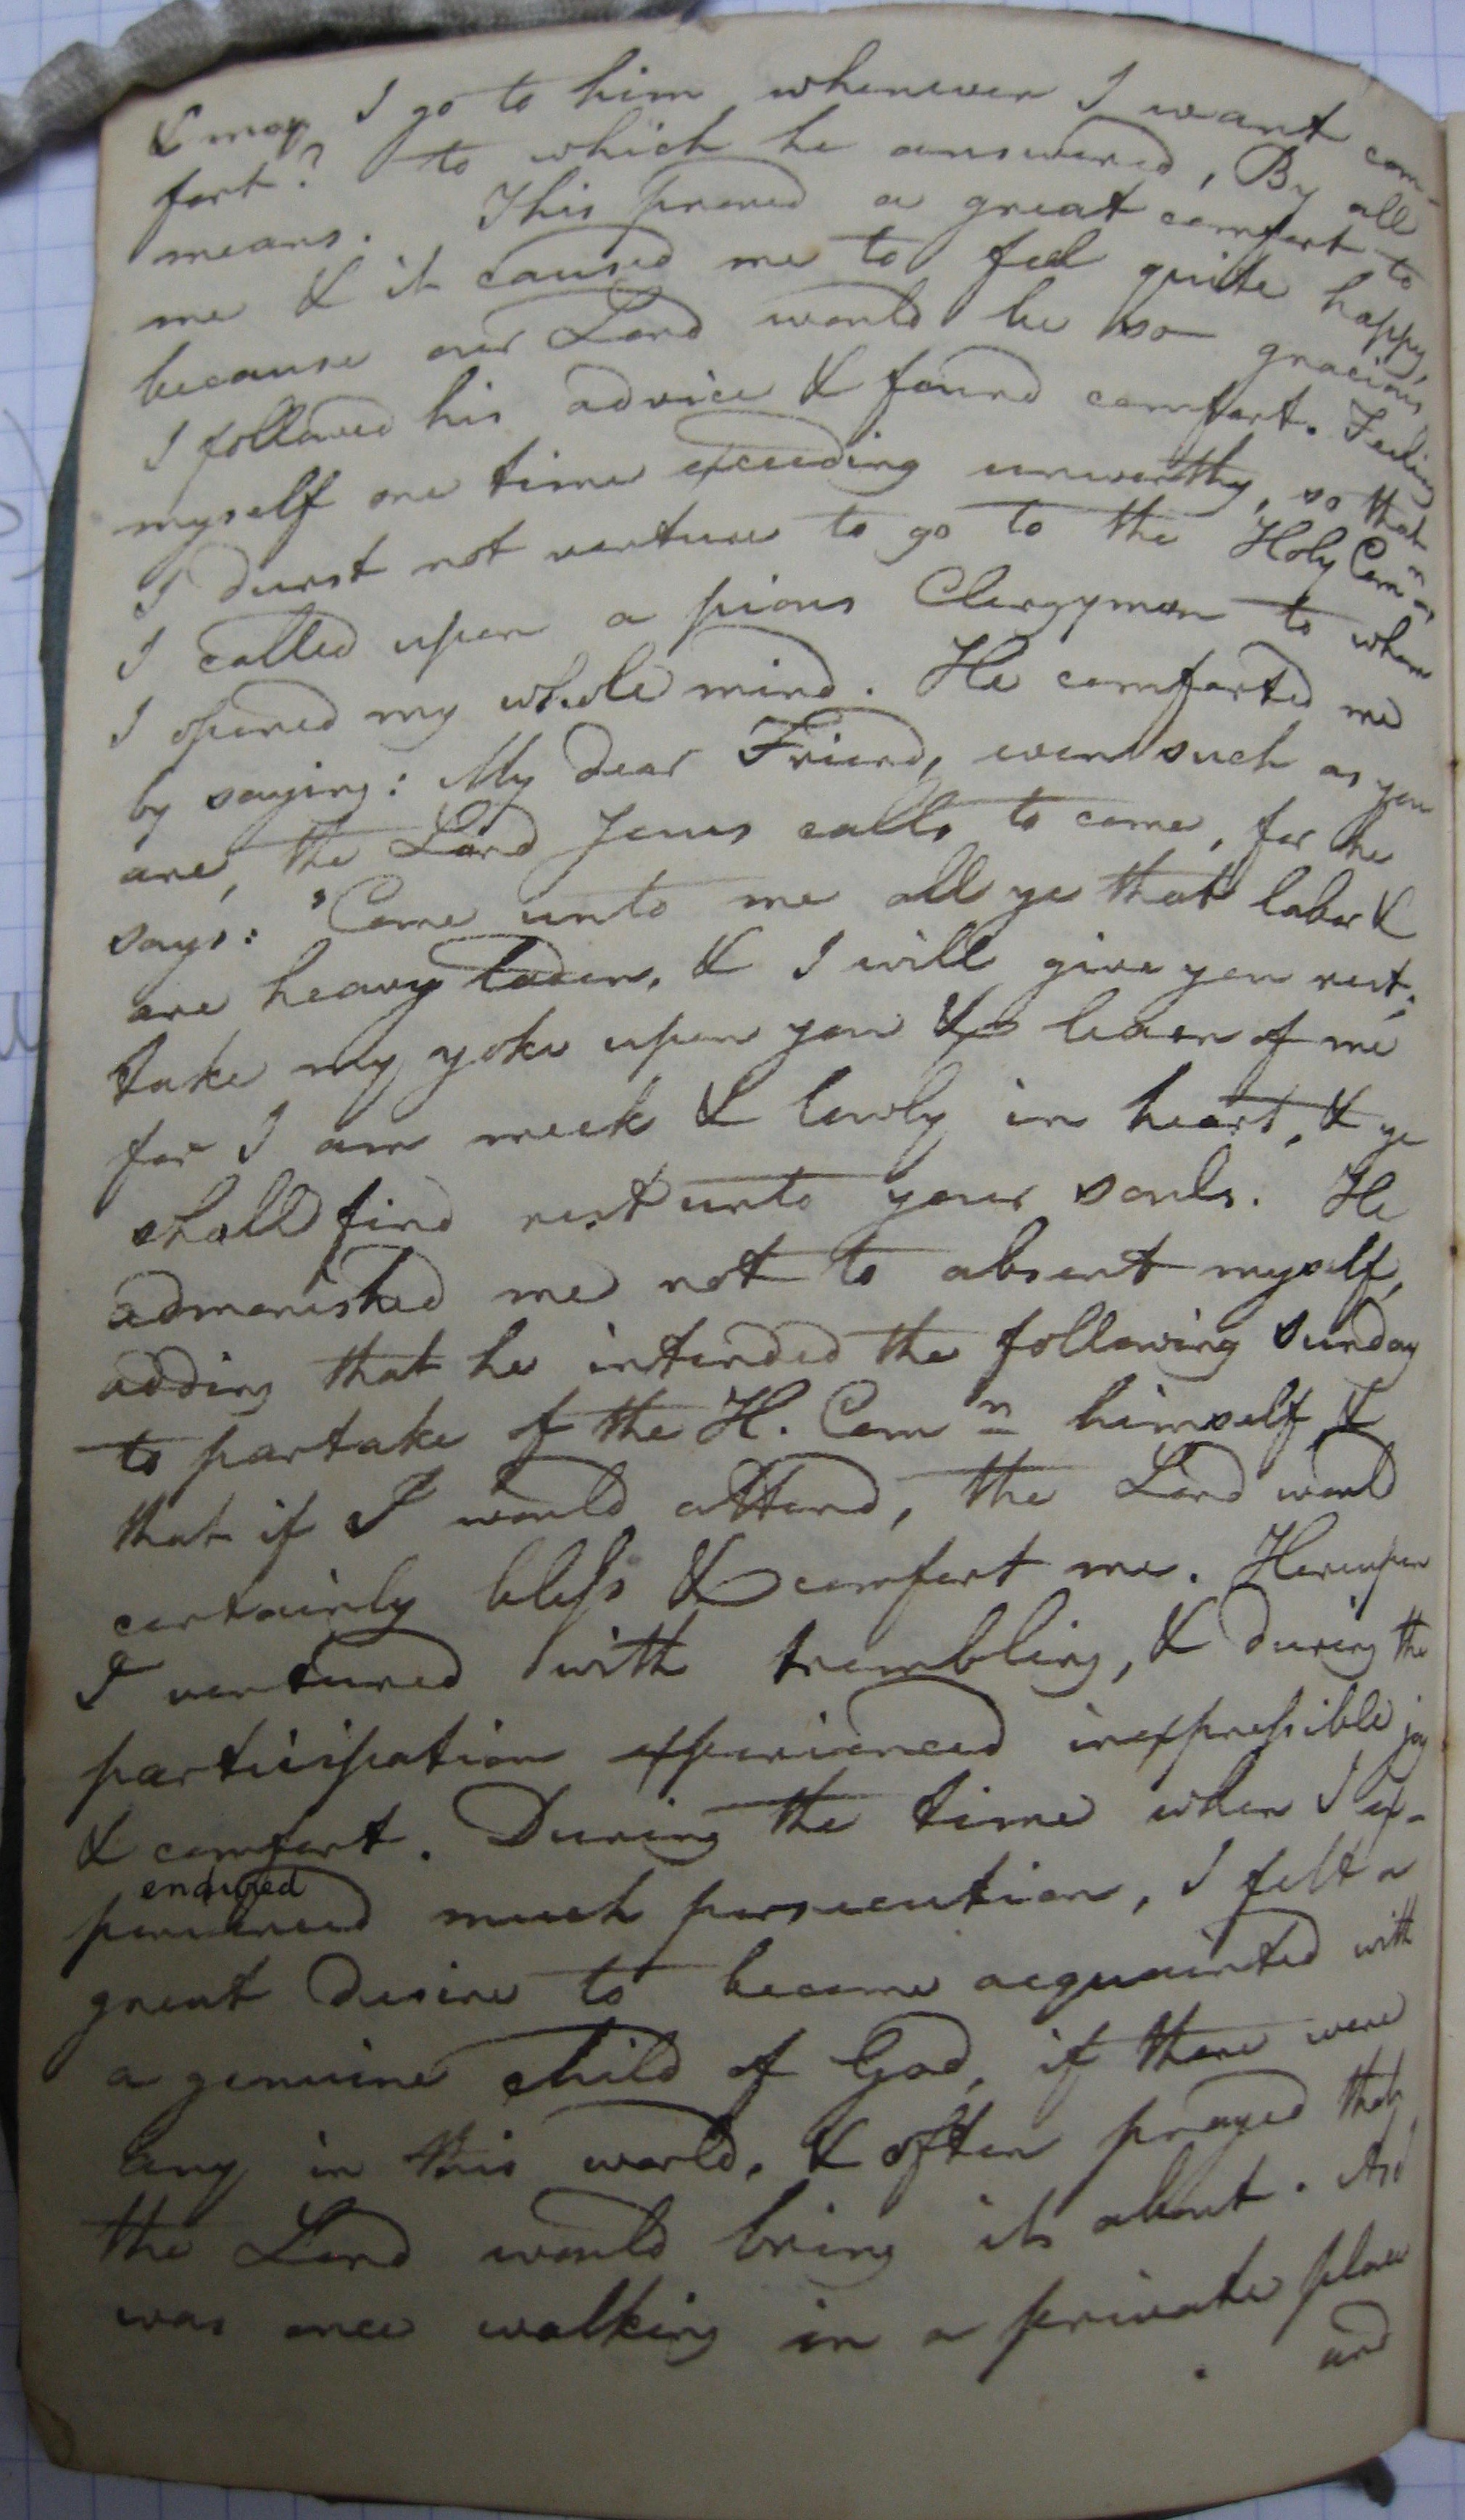 & may I go to him whenever I want com-
fort? to which he answered, By all
means. This proved a great comfort to
me & it caused me to feel quite happy,
because our Lord would be so gracious
I followed his advice & found comfort. Feeling
myself one time exceeding unworthy, so that
I durst not venture to go to the Holy Comn
I called upon a pious Clergyman to whom
I opened my whole mind. He comforted me
by saying: My dear Friend, even such as you
are, the Lord Jesus calls to come, for he
says: "Come unto me all ye that labor &
are heavy laden, & I will give you rest;
take my yoke upon you & learn of me
for I am meek & lowly in heart, & ye
shall find rest unto your souls. He
admonished me not to absent myself,
adding that he intended the following Sunday
to partake of the H. Comn himself &
that if I would attend, the Lord would
certainly bless & comfort me. Hereupon
I ventured with trembling, & during the
participation experienced inexpressible joy
& comfort. During the time when I ex-
endured
perienced much persecution, I felt a
great desire to become acquainted with
a genuine child of God, if there were
any in this world, & often prayed that
the Lord would bring it about. And
was once walking in a private place
and